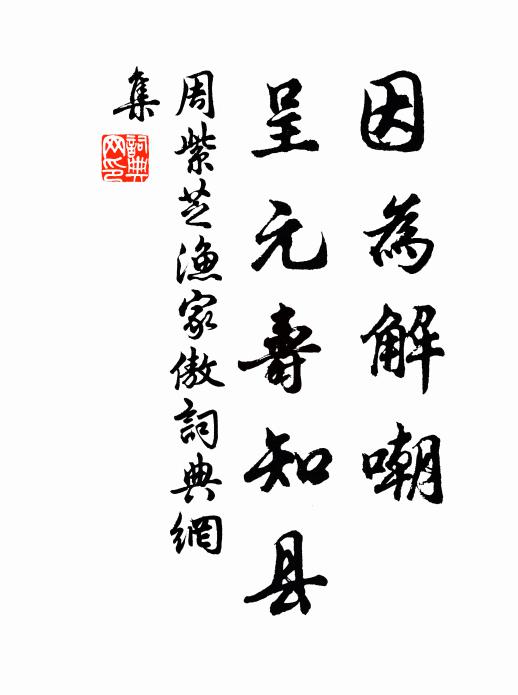 因為解嘲
呈元壽知县
周紫芝漁家傲詞典網
集
詞典
網印